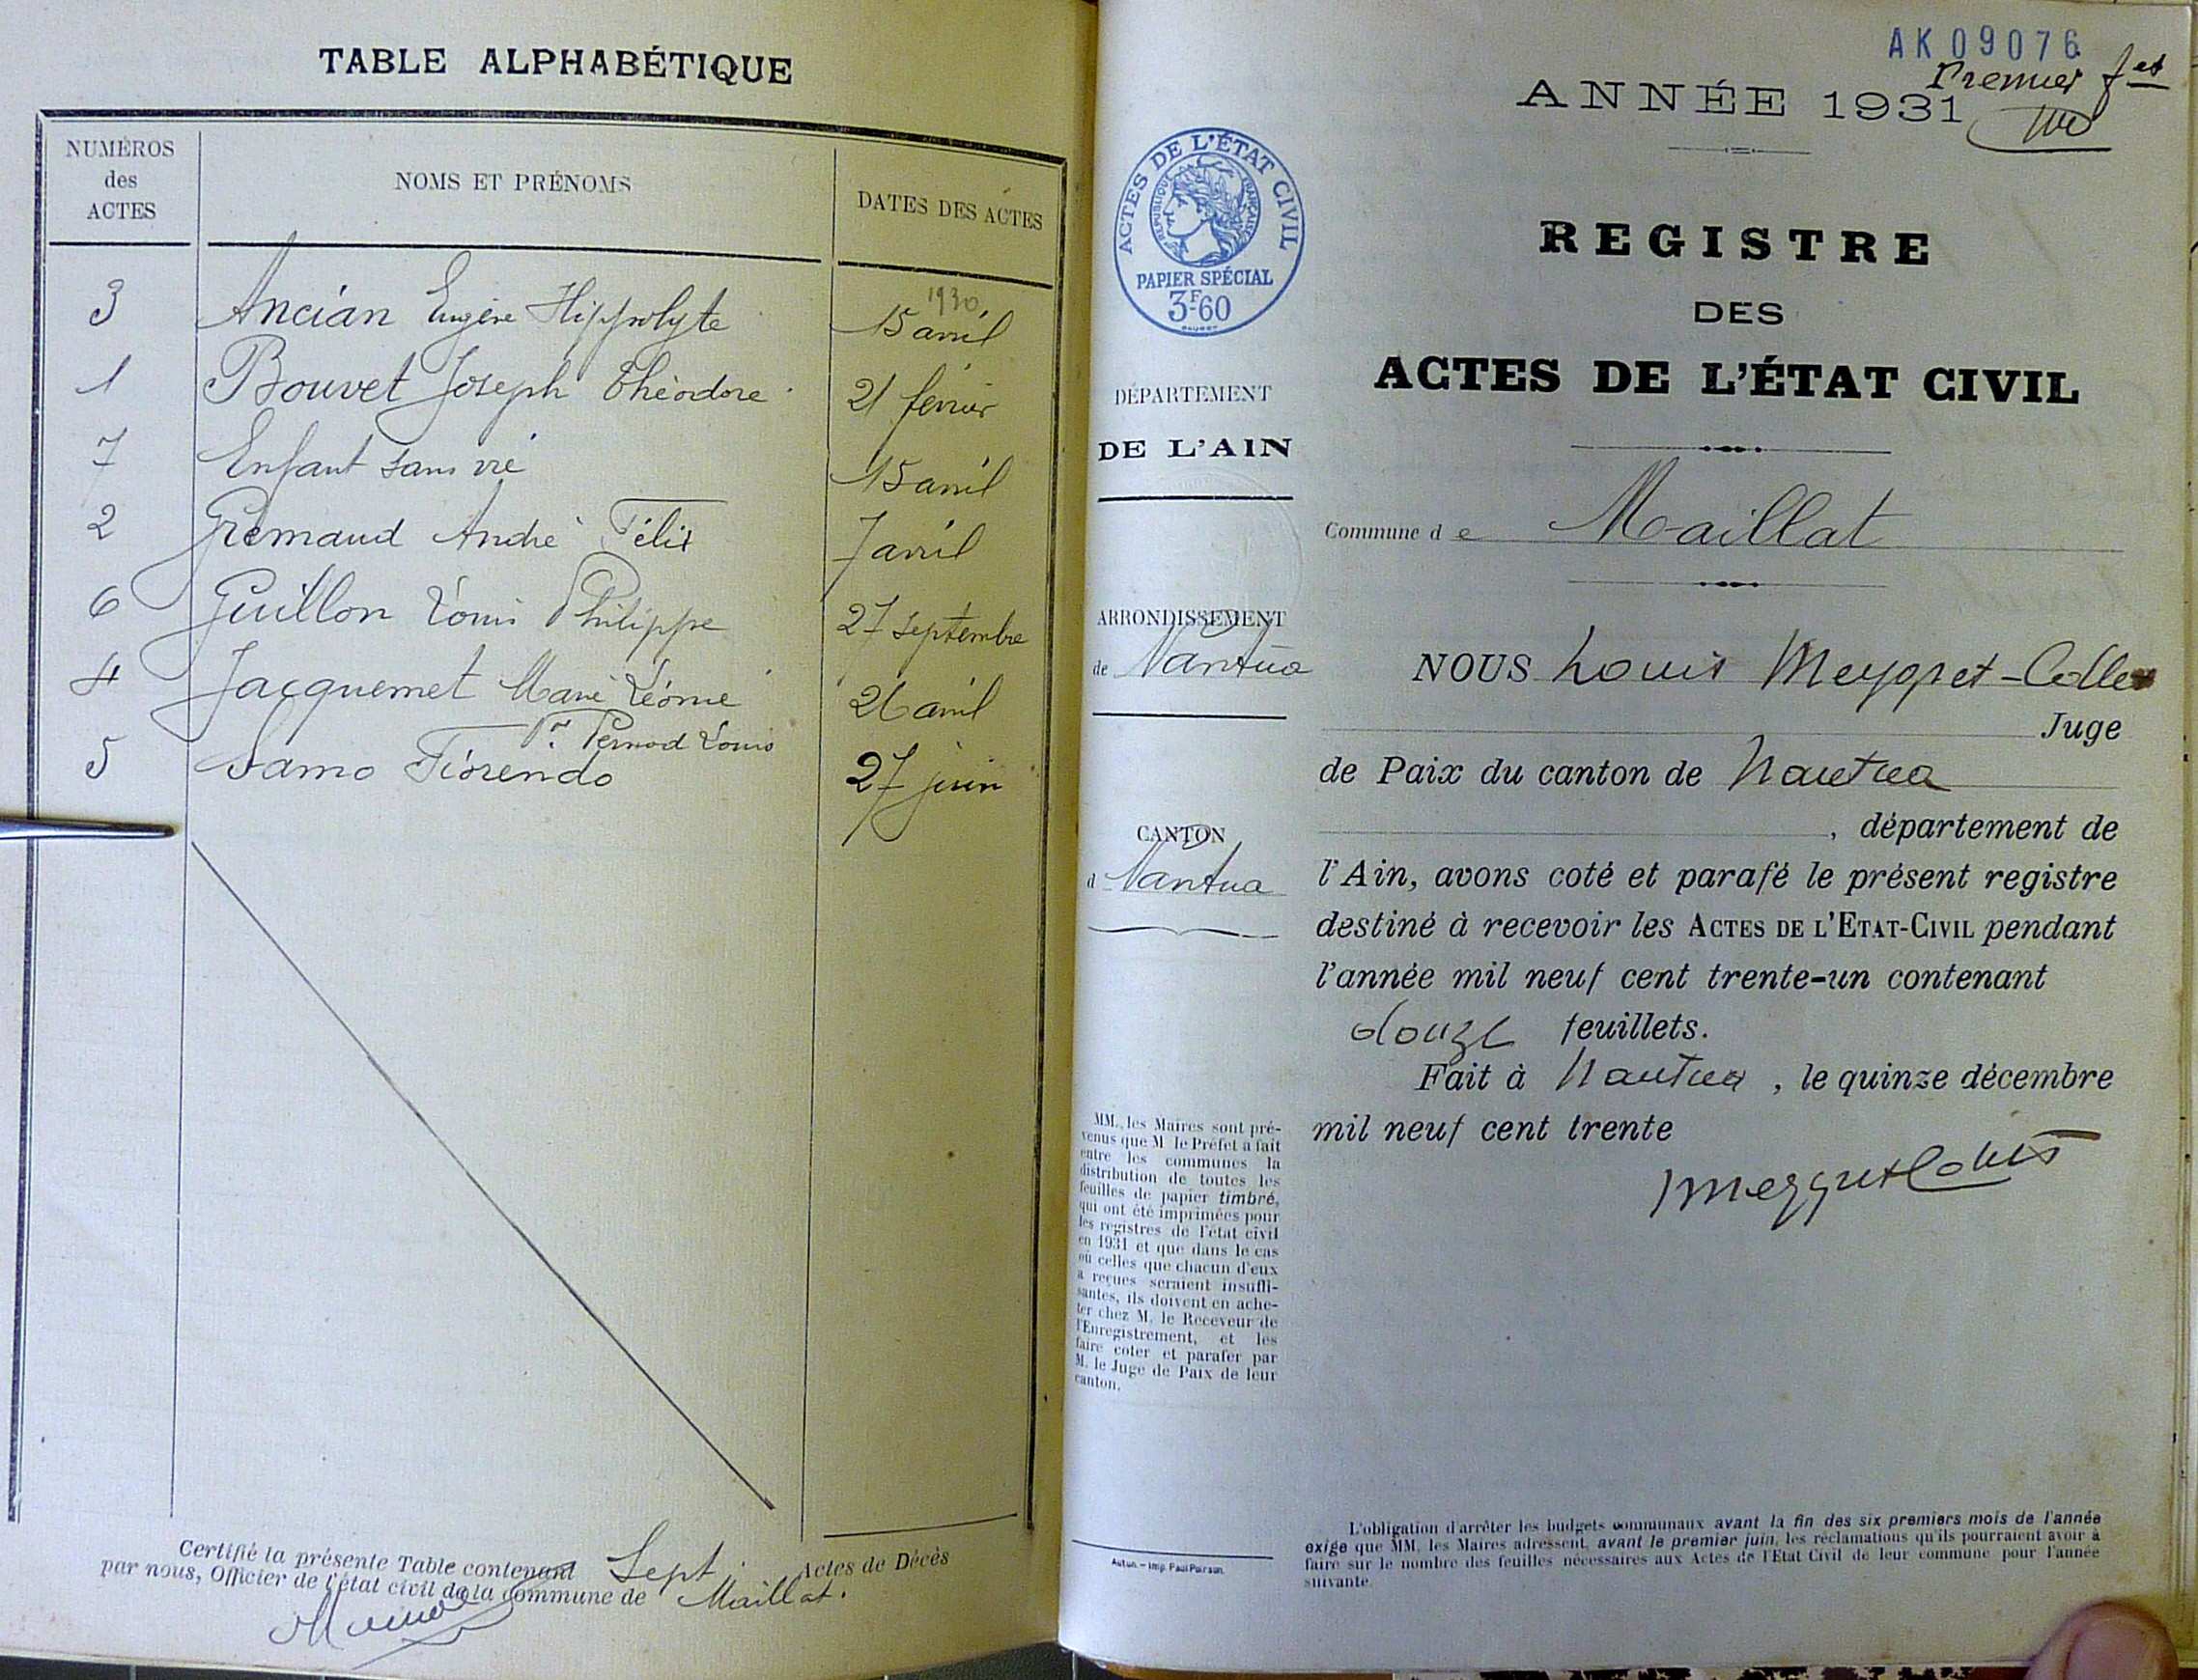 TABLE ALPHABÉTIQUE
NUMÉROS
des
ACTES
NOMS ET PRÉNOMS
DATES DES ACTES
1930
3 Ancian Eugène Hippolyte 15 avril
1 Bouvet Joseph Théodore 21 février
7 Enfant sans vie 15 avril
2 Gremaud André Félix 7 avril
6 Guillon Louis Philippe 27 septembre
4 Jacquemet Marie Léonie 26 avril
Vve Pernod Louis
5 Samo Fiorendo 27 juin
Certifié la présente Table contenant Sept Actes de Décès
par nous, Officier de l'état civil de la commune de Maillat.
AK 09076
Premier fet
ANNÉE 1931
ACTES DE L'ÉTAT CIVIL
RÉPUBLIQUE FRANÇAISE
PAPIER SPÉCIAL
3F60
REGISTRE
DES
ACTES DE L'ÉTAT CIVIL
DÉPARTEMENT
DE L'AIN
Commune de Maillat
ARRONDISSEMENT
de Nantua
CANTON
d Nantua
NOUS Louis Meygret-Collet
Juge
de Paix du canton de Nantua
, département de
l'Ain, avons coté et parafé le présent registre
destiné à recevoir les ACTES DE L'ETAT-CIVIL pendant
l'année mil neuf cent trente-un contenant
douze feuillets.
Fait à Nantua, le quinze décembre
mil neuf cent trente
MM. les Maires sont pré-
venus que M le Préfet a fait
entre les communes la
distribution de toutes les
feuilles de papier timbré,
qui ont été imprimées pour
les registres de l'état civil
en 1931 et que dans le cas
où celles que chacun d'eux
a reçues seraient insuffi-
santes, ils doivent en ache-
ter chez M. le Receveur de
l'Enregistrement, et les
faire coter et parafer par
M. le Juge de Paix de leur
canton.
Autun. — Imp. Paul Poirson.
L'obligation d'arrêter les budgets communaux avant la fin des six premiers mois de l'année
exige que MM. les Maires adressent, avant le premier juin, les réclamations qu'ils pourraient avoir à
faire sur le nombre des feuilles nécessaires aux Actes de l'Etat Civil de leur commune pour l'année
suivante.